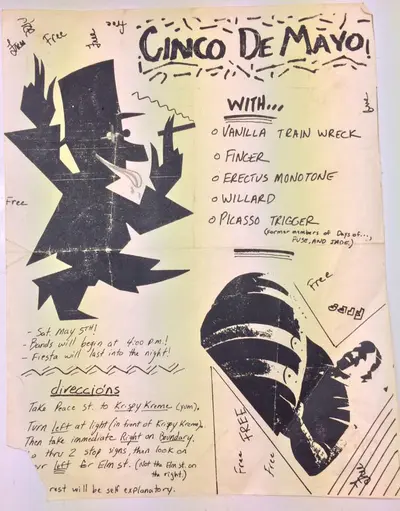 Free
Free
Free
CINCO DE MAYO!
WITH...
o VANILLA TRAIN WRECK
o FINGER
o ERECTUS MONOTONE
o WILLARD
o PICASSO TRIGGER
(Former members of Days of...,
FUSE, AND JADE)
Free
Free
Free
- Sat. May 5TH!
- Bands will begin at 4:00 P.M.!
- Fiesta will last into the night!
direccións
Take Peace st. to Krispy Kreme (yum),
Turn Left at light (in front of Krispy Kreme)
Then take immediate Right on Boundary.
thru 2 stop signs, then look on
Left for Elm st. (Not the Elm st. on
the right.)
rest will be self explanatory.
FREE
Free
Free
Free